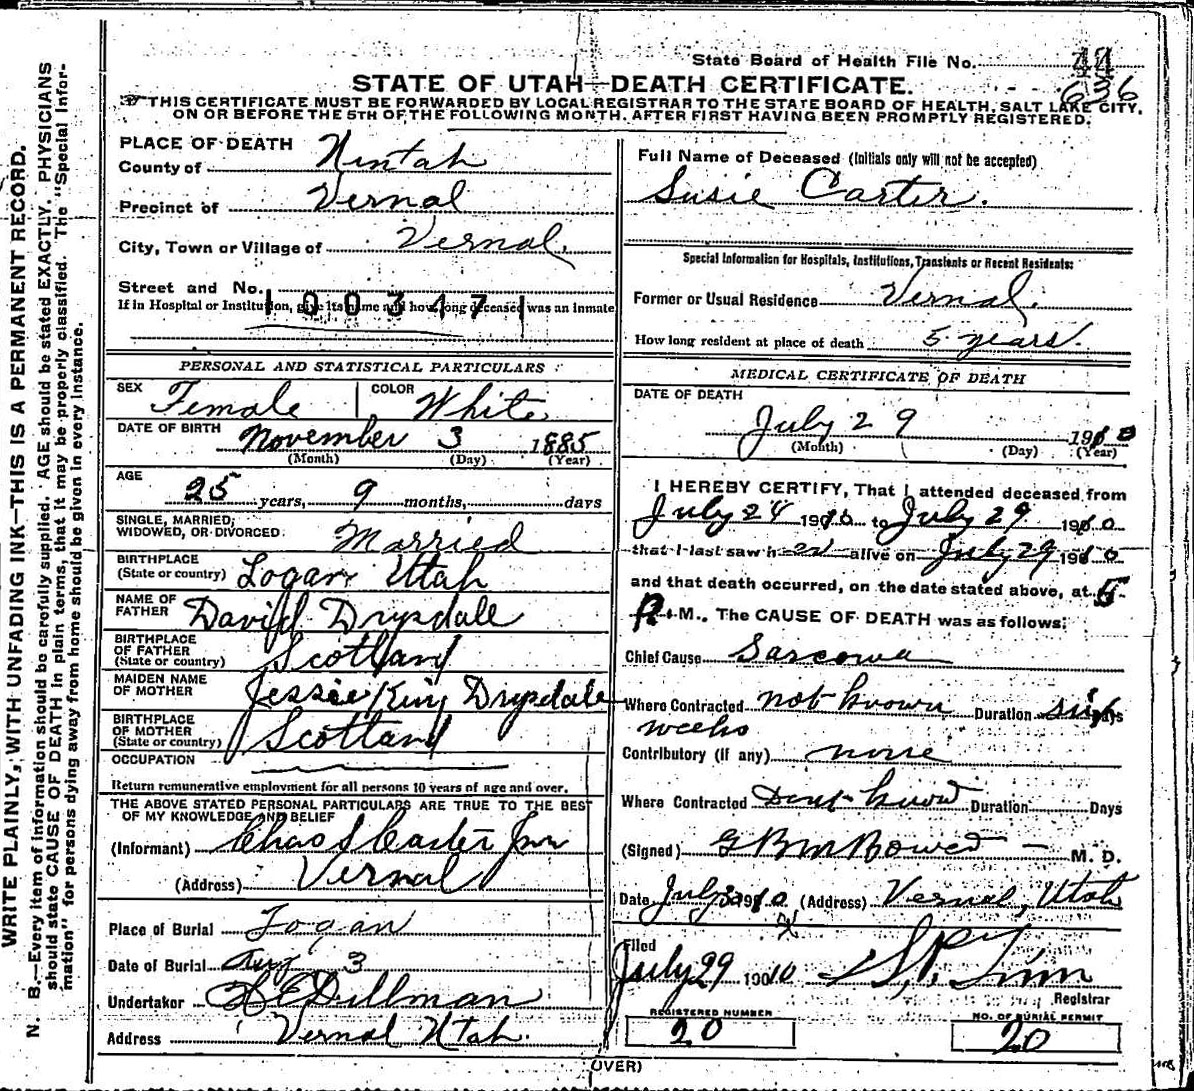 State Board of Health File No. 44
636
STATE OF UTAH—DEATH CERTIFICATE.
THIS CERTIFICATE MUST BE FORWARDED BY LOCAL REGISTRAR TO THE STATE BOARD OF HEALTH, SALT LAKE CITY,
ON OR BEFORE THE 5TH OF THE FOLLOWING MONTH. AFTER FIRST HAVING BEEN PROMPTLY REGISTERED.
WRITE PLAINLY, WITH UNFADING INK—THIS IS A PERMANENT RECORD.
N. B.—Every item of information should be carefully supplied. AGE should be stated EXACTLY. PHYSICIANS
should state CAUSE OF DEATH in plain terms, that it may be properly classified. The "Special Infor-
mation" for persons dying away from home should be given in every instance.
PLACE OF DEATH
County of Uintah
Precinct of Vernal
City, Town or Village of Vernal.
Street and No.
If in Hospital or Institution, give its name and how long deceased was an inmate
1003471
PERSONAL AND STATISTICAL PARTICULARS
SEX Female COLOR White
DATE OF BIRTH November 3 1885
(Month) (Day) (Year)
AGE 25 years, 9 months, days
SINGLE, MARRIED,
WIDOWED, OR DIVORCED. Married
BIRTHPLACE
(State or country) Logan Utah
NAME OF
FATHER David Drysdale
BIRTHPLACE
OF FATHER
(State or country) Scotland
MAIDEN NAME
OF MOTHER Jessie King Drysdale
BIRTHPLACE
OF MOTHER
(State or country) Scotland
OCCUPATION
Return remunerative employment for all persons 10 years of age and over.
THE ABOVE STATED PERSONAL PARTICULARS ARE TRUE TO THE BEST
OF MY KNOWLEDGE AND BELIEF
(Informant) Chas S Carter Jun
(Address) Vernal
Place of Burial Logan
Date of Burial Aug 3
Undertaker Dillman
Address Vernal Utah.
Full Name of Deceased (Initials only will not be accepted)
Susie Carter.
Special Information for Hospitals, Institutions, Transients or Recent Residents:
Former or Usual Residence Vernal.
How long resident at place of death 5 years.
MEDICAL CERTIFICATE OF DEATH
DATE OF DEATH
July 29 1910
(Month) (Day) (Year)
I HEREBY CERTIFY, That I attended deceased from
July 24 1910 to July 29 1910
that I last saw her alive on July 29 1910
and that death occurred, on the date stated above, at 5
P. M., The CAUSE OF DEATH was as follows:
Chief Cause Sarcoma
Where Contracted not known Duration six Days
weeks
Contributory (if any) none
Where Contracted Dont know Duration Days
(Signed) G B M Bower M. D.
Date July 30 1910 (Address) Vernal, Utah
Filed
July 29 1910
Registrar
REGISTERED NUMBER
20
NO. OF BURIAL PERMIT
20
(OVER)